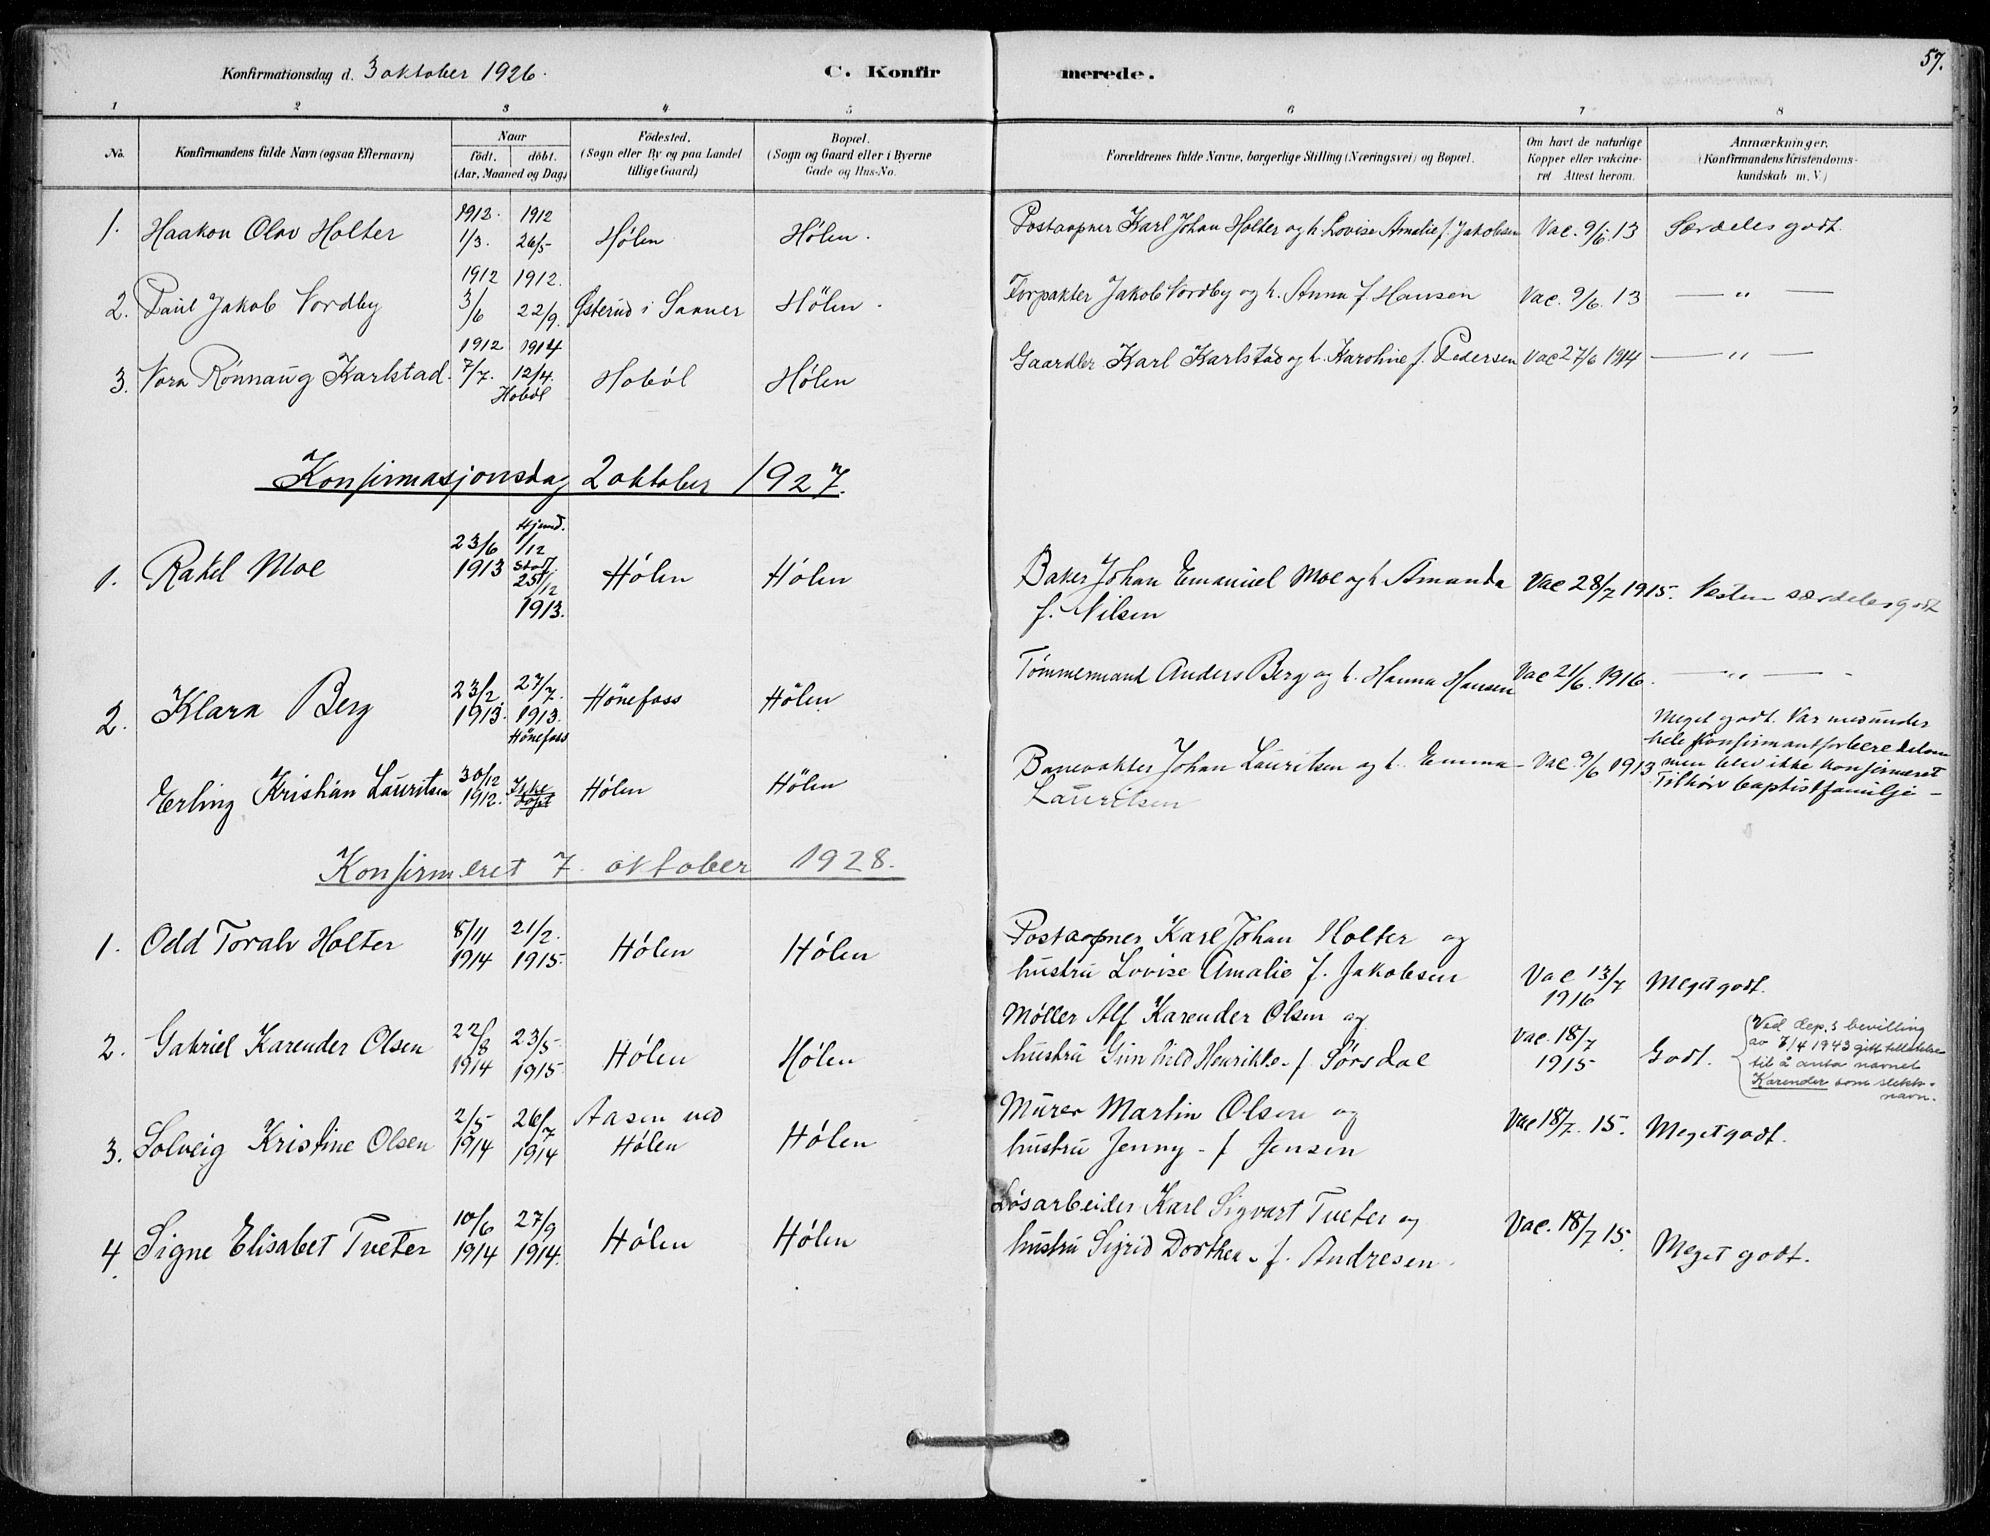 57.
Konfirmationsdag d. 3 oktober 1926.
C. Konfirmerede.
1 2 3 4 5 6 7 8
No.
Konfirmandens fulde Navn (ogsaa Efternavn)
Naar
født. døbt.
(Aar, Maaned og Dag)
Födested.
(Sogn eller By og paa Landet
tillige Gaard)
Bopæl.
(Sogn og Gaard eller i Byerne
Gade og Hus-No.
Forældrenes fulde Navne, borgerlige Stilling (Næringsvei) og Bopæl.
Om havt de naturlige
Kopper eller vakcine-
ret Attest herom.
Anmærkninger.
(Konfirmandens Kristendoms-
kundskab m. V.)
1. Haakon Olav Holter 1912. 1/3. 1912 26/5 Hølen Hølen. Postaapner Karl Johan Holter og h. Lovise Amalie f. Jakobsen Vac. 9/6. 13 Særdeles godt.
2. Paul Jakob Nordby 1912 3/6 1912. 22/9. Østerud i Saaner Hølen. Forpakter Jakob Nordby og h. Anna f. Hansen Vac. 9/6. 13 — " —
3. Nora Rønnaug Karlstad 1912 7/7. 1914 12/4. Hobøl Hobøl Hølen Gaardbr. Karl Karlstad og h. Karoline f. Pedersen Vac 27/6 1914 — " —
Konfirmasjonsdag 2 oktober 1927.
1. Rakel Moe 23/6 1913 Hjemd. 1/12 Stadf. 25/12 1913. Hølen Hølen Baker Johan Emanuel Moe og h Amanda Vac 28/7 1915. Nesten særdeles godt
f. Nilsen
2. Klara Berg 23/2. 1913. 27/7. 1913. Hønefoss Hønefoss Hølen Tømmermand Anders Berg og h. Hanna Hansen Vac 21/6. 1916. — " —
Erling Kristian Lauritsen 30/12 1912. Ikke døpt Hølen Hølen Banevakter Johan Lauritsen og h. Emma Vac 9/6 1913
Lauritsen
Meget godt. Var med under
hele konfirmantforberedelsen
men blev ikke konfirmeret
Tilhøre baptistfamilje –
Konfirmeret 7. oktober 1928.
1. Odd Toralv Holter 8/11 1914 21/2. 1915. Hølen Hølen Postaapner Karl Johan Holter og
hustru Lovise Amalie f. Jakobsen Vac 13/7 1916 Meget godt.
2. Gabriel Karender Olsen 22/8 1914 23/5 1915 Hølen Hølen Møller Alf Karender Olsen og
hustru Gunhild Henrikke f Sørsdal Vac. 18/7 1915 Godt.
Ved dep.s bevilling
av 7/4 1943 gitt tillatelse
til å anta navnet
Karender som slekts-
navn.
3. Solveig Kristine Olsen 2/5 1914 26/7 1914 Aasen ved Hølen Hølen Murer Martin Olsen og
hustru Jenny – f Jensen Vac 18/7. 15. Meget godt.
4. Signe Elisabet Tveter 10/6 1914 27/9 1914. Hølen Hølen Løsarbeider Karl Sigvart Tveter og
hustru Sigrid Dorthea – f. Andresen Vac. 18/7 15. Meget godt.